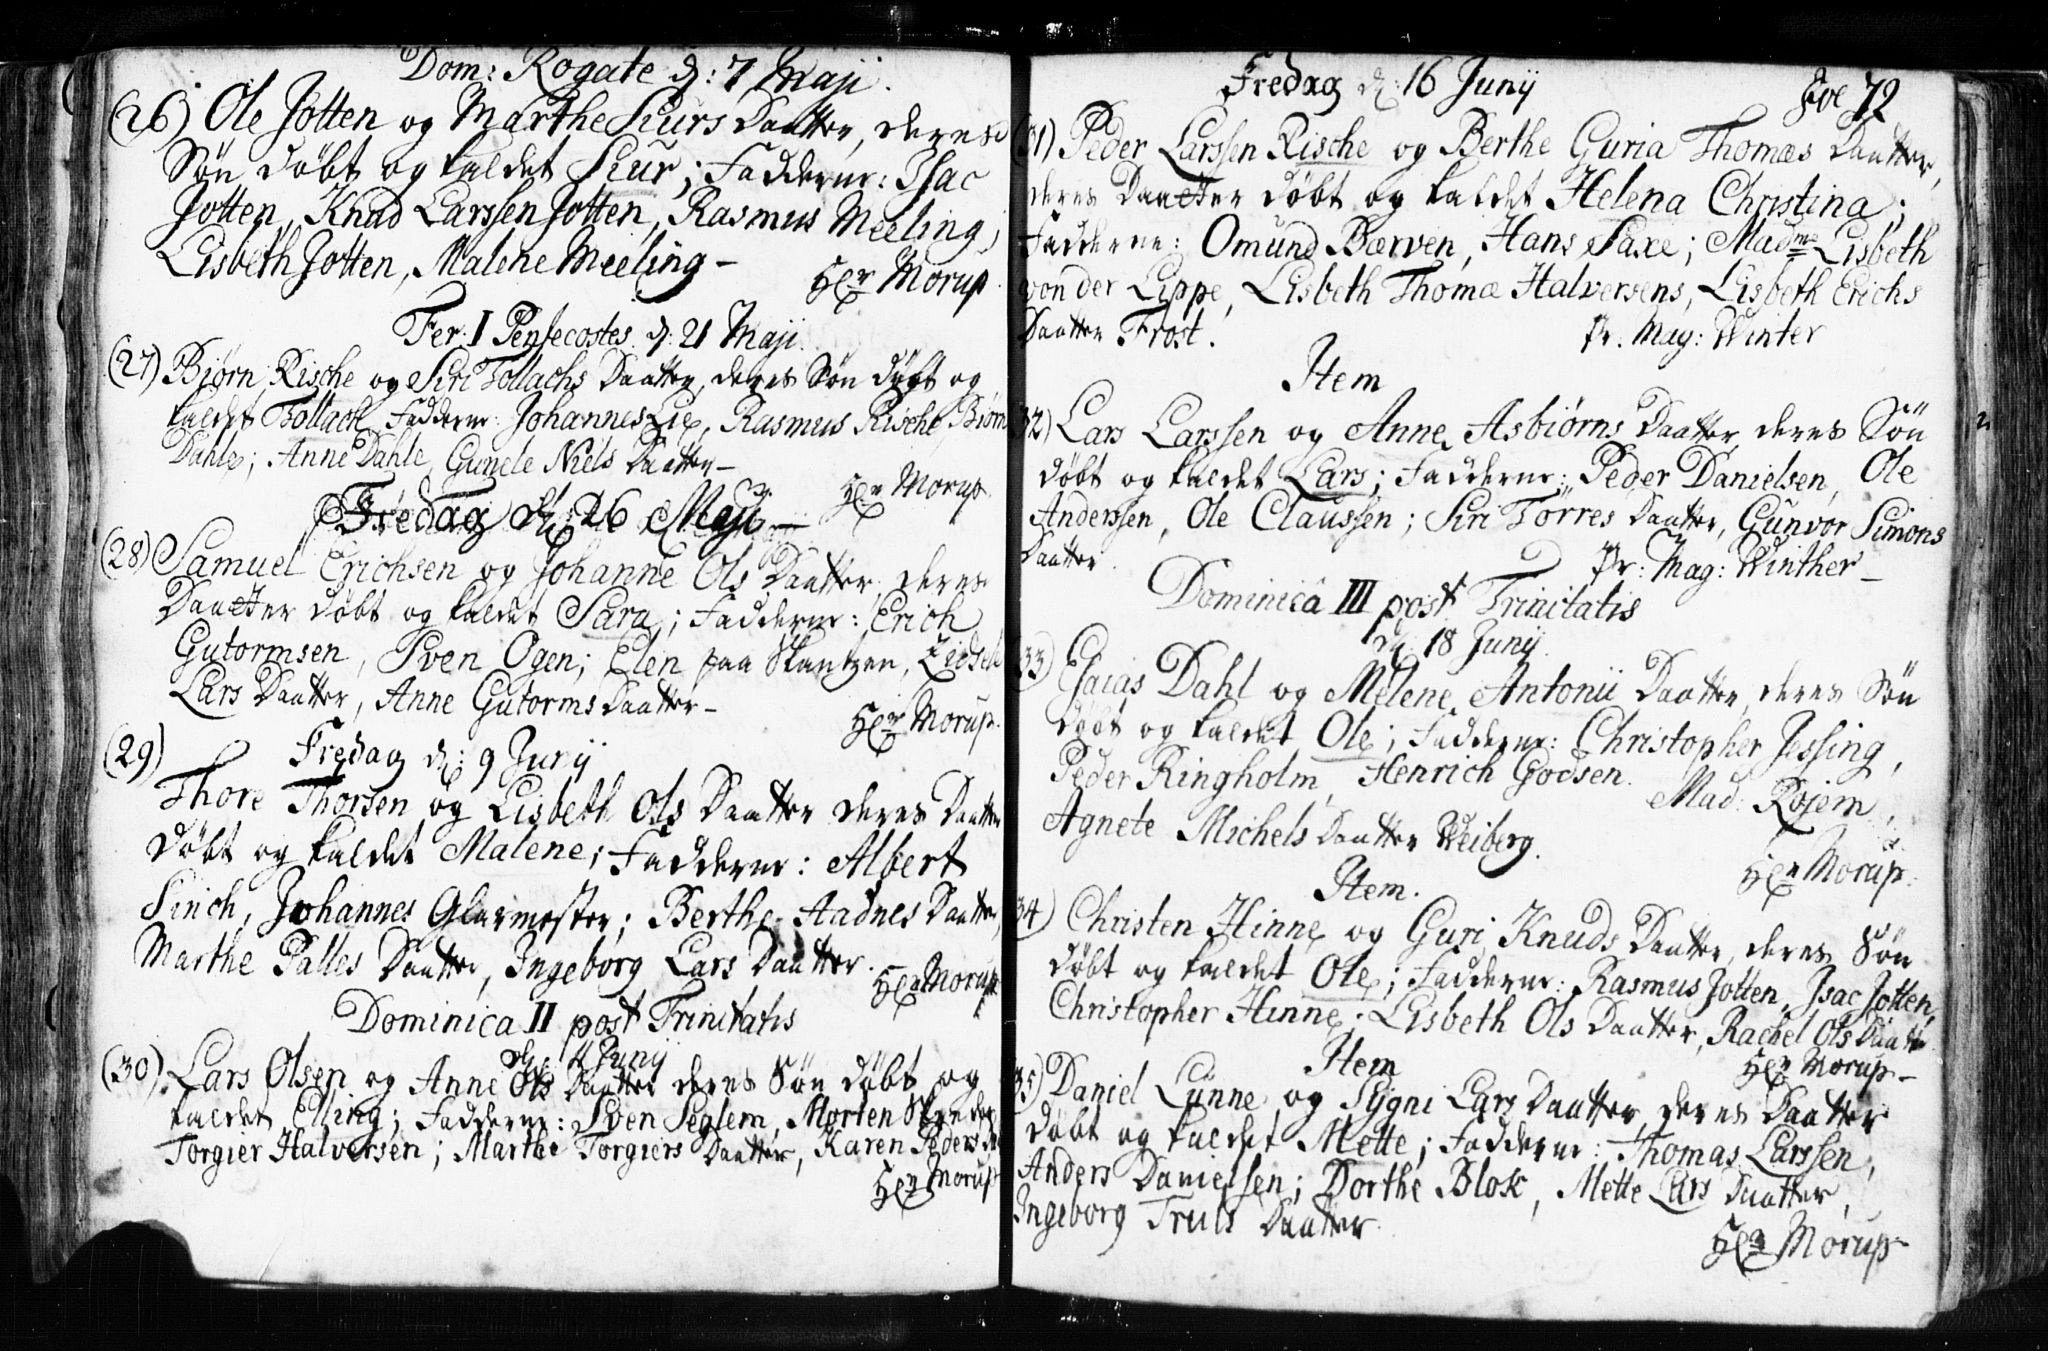 Dom: Rogate d: 7 Maji.
(26) Ole Jotten og Marthe Siurs Daatter, deres
Søn døbt og kaldet Siur; Fadderne: Isac
Jotten, Knud Larssen Jotten, Rasmus Meeling;
Lisbeth Jotten, Malene Meeling –
Hr Morup
Fer. I Pentecostes d: 21 Maji
(27) Biørn Rische og Siri Tollachs Daatter, deres Søn døbt og
kaldet Tollach, Fadderne: Johannes Lie, Rasmus Rische Biørn
Dahle; Anne Dahle, Gunele Niels Daatter –
Hr Morup.
Fredag d: 26 Maji –
(28) Samuel Erichsen og Johanne Ols Daatter, deres
Daatter døbt og kaldet Sara; Fadderne: Erich
Gutormsen, Sven Ogen; Elen paa Skantzen,
Lars Daatter, Anne Gutorms Daatter –
Hr Morup.
(29) Fredag d: 9 Junij
Thore Thorsen og Lisbeth Ols Daatter deres Daatter
døbt og kaldet Malene; Fadderne: Albert
Sinch, Johannes Glarmester; Berthe Aadnes Daatter,
Marthe Palles Daatter, Ingeborg Lars Daatter.
Hr Morup
Dominica II post Trinitatis
d: 11 Junij
(30) Lars Olsen og Anne Ols Daatter deres Søn døbt og
kaldet Elling; Fadderne: Sven Seglem, Morten
Torgier Halversen; Marthe Torgiers Daatter, Karen Peders
Hr Morup
Fredag d: 16 Junij
72
31) Peder Larssen Rische og Berthe Guria Thomæs Daatter,
deres Daatter døbt og kaldet Helena Christina;
Fadderne: Omund Bærven, Hans Saxe; Madme Lisbeth
von der Lippe, Lisbeth Thomæ Halversens, Lisbeth Erichs
Daatter Frost.
Pr. Mag: Winter
Item
32) Lars Larssen og Anne Asbiørns Daatter, deres Søn
døbt og kaldet Lars; Fadderne: Peder Danielsen, Ole
Anderssen, Ole Claussen; Siri Törres Daatter, Gunvor Simons
Daatter.
Pr: Mag: Winther –
Dominica III post Trinitatis
d: 18 Junij.
33) Esaias Dahl og Melene Antonii Daatter, deres Søn
døbt og kaldet Ole; Fadderne: Christopher Jessing,
Peder Ringholm, Henrich Godsen. Mad: Rojem,
Agnete Michels Daatter Weiberg.
Hr Morup.
Item.
34) Christen Hinne og Guri Knuds Daatter, deres Søn
døbt og kaldet Ole; Fadderne: Rasmus Jotten, Isac Jotten,
Christopher Hinne; Lisbeth Ols Daatter, Rachel Ols Daatter
Hr Morup –
Item
35) Daniel Lunne og Sygni Lars Daatter, deres Daatter
døbt og kaldet Mette; Fadderne: Thomas Larssen,
Anders Danielsen; Dorthe Blok, Mette Lars Daatter,
Ingeborg Truls Daatter
Hr Morup